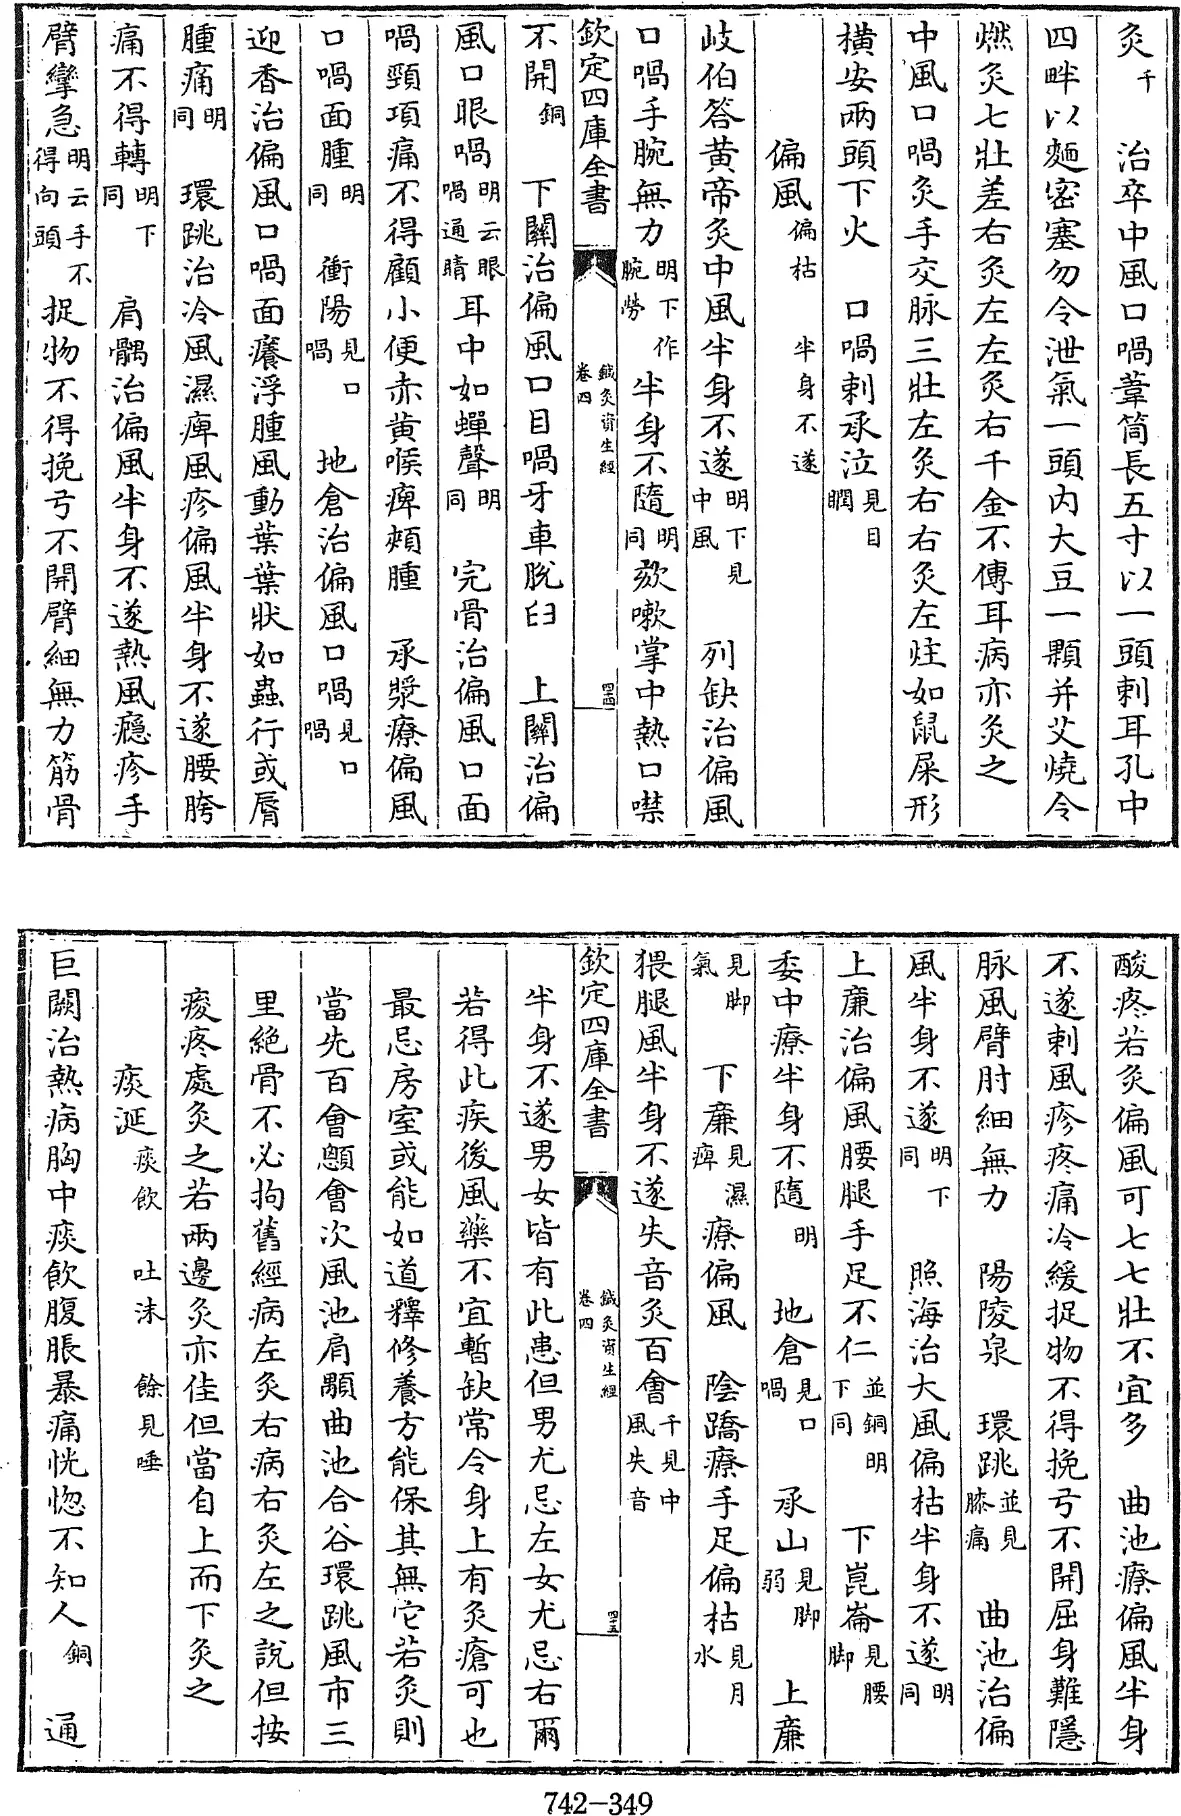 灸千　治卒中風口喎葦筒長五寸以一頭刺耳孔中
四畔以麵密塞勿令泄氣一頭内大豆一顆并艾燒令
燃灸七壯差右灸左左灸右千金不傳耳病亦灸之
中風口喎灸手交脉三壯左灸右右灸左炷如鼠屎形
横安兩頭下火　口喎刺承泣見目瞤
偏風偏枯　半身不遂
岐伯答黄帝灸中風半身不遂明下見中風　列缺治偏風
口喎手腕無力明下作腕勞　半身不隨明同欬嗽掌中熱口噤
欽定四庫全書　鍼灸資生經卷四　四四
不開銅　下關治偏風口目喎牙車脫臼　上關治偏
風口眼喎明云眼喎通睛耳中如蟬聲明同　完骨治偏風口面
喎頸項痛不得顧小便赤黄喉痺頰腫　承漿療偏風
口喎面腫明同　衝陽見口喎　地倉治偏風口喎見口喎
迎香治偏風口喎面癢浮腫風動葉葉狀如蟲行或脣
腫痛明同　環跳治冷風濕痺風疹偏風半身不遂腰胯
痛不得轉明下同　肩髃治偏風半身不遂熱風癮疹手
臂攣急明云手不得向頭捉物不得挽弓不開臂細無力筋骨
酸疼若灸偏風可七七壯不宜多　曲池療偏風半身
不遂刺風疹疼痛冷緩捉物不得挽弓不開屈身難隱
脉風臂肘細無力　陽陵泉　環跳並見膝痛　曲池治偏
風半身不遂明下同　照海治大風偏枯半身不遂明同
上廉治偏風腰腿手足不仁並銅明下同　下崑崙見腰脚
委中療半身不隨明　地倉見口喎　承山見脚弱　上廉
見脚氣　下廉見濕痺療偏風　陰蹻療手足偏枯見月水
猥腿風半身不遂失音灸百會千見中風失音
欽定四庫全書　鍼灸資生經卷四　四五
半身不遂男女皆有此患但男尤忌左女尤忌右爾
若得此疾後風藥不宜暫缺常令身上有灸瘡可也
最忌房室或能如道釋修養方能保其無它若灸則
當先百會顖會次風池肩顒曲池合谷環跳風市三
里絶骨不必拘舊經病左灸右病右灸左之說但按
痠疼處灸之若兩邊灸亦佳但當自上而下灸之
痰涎痰飲　吐沫　餘見唾
巨闕治熱病胸中痰飲腹脹暴痛恍惚不知人銅　通
742-349